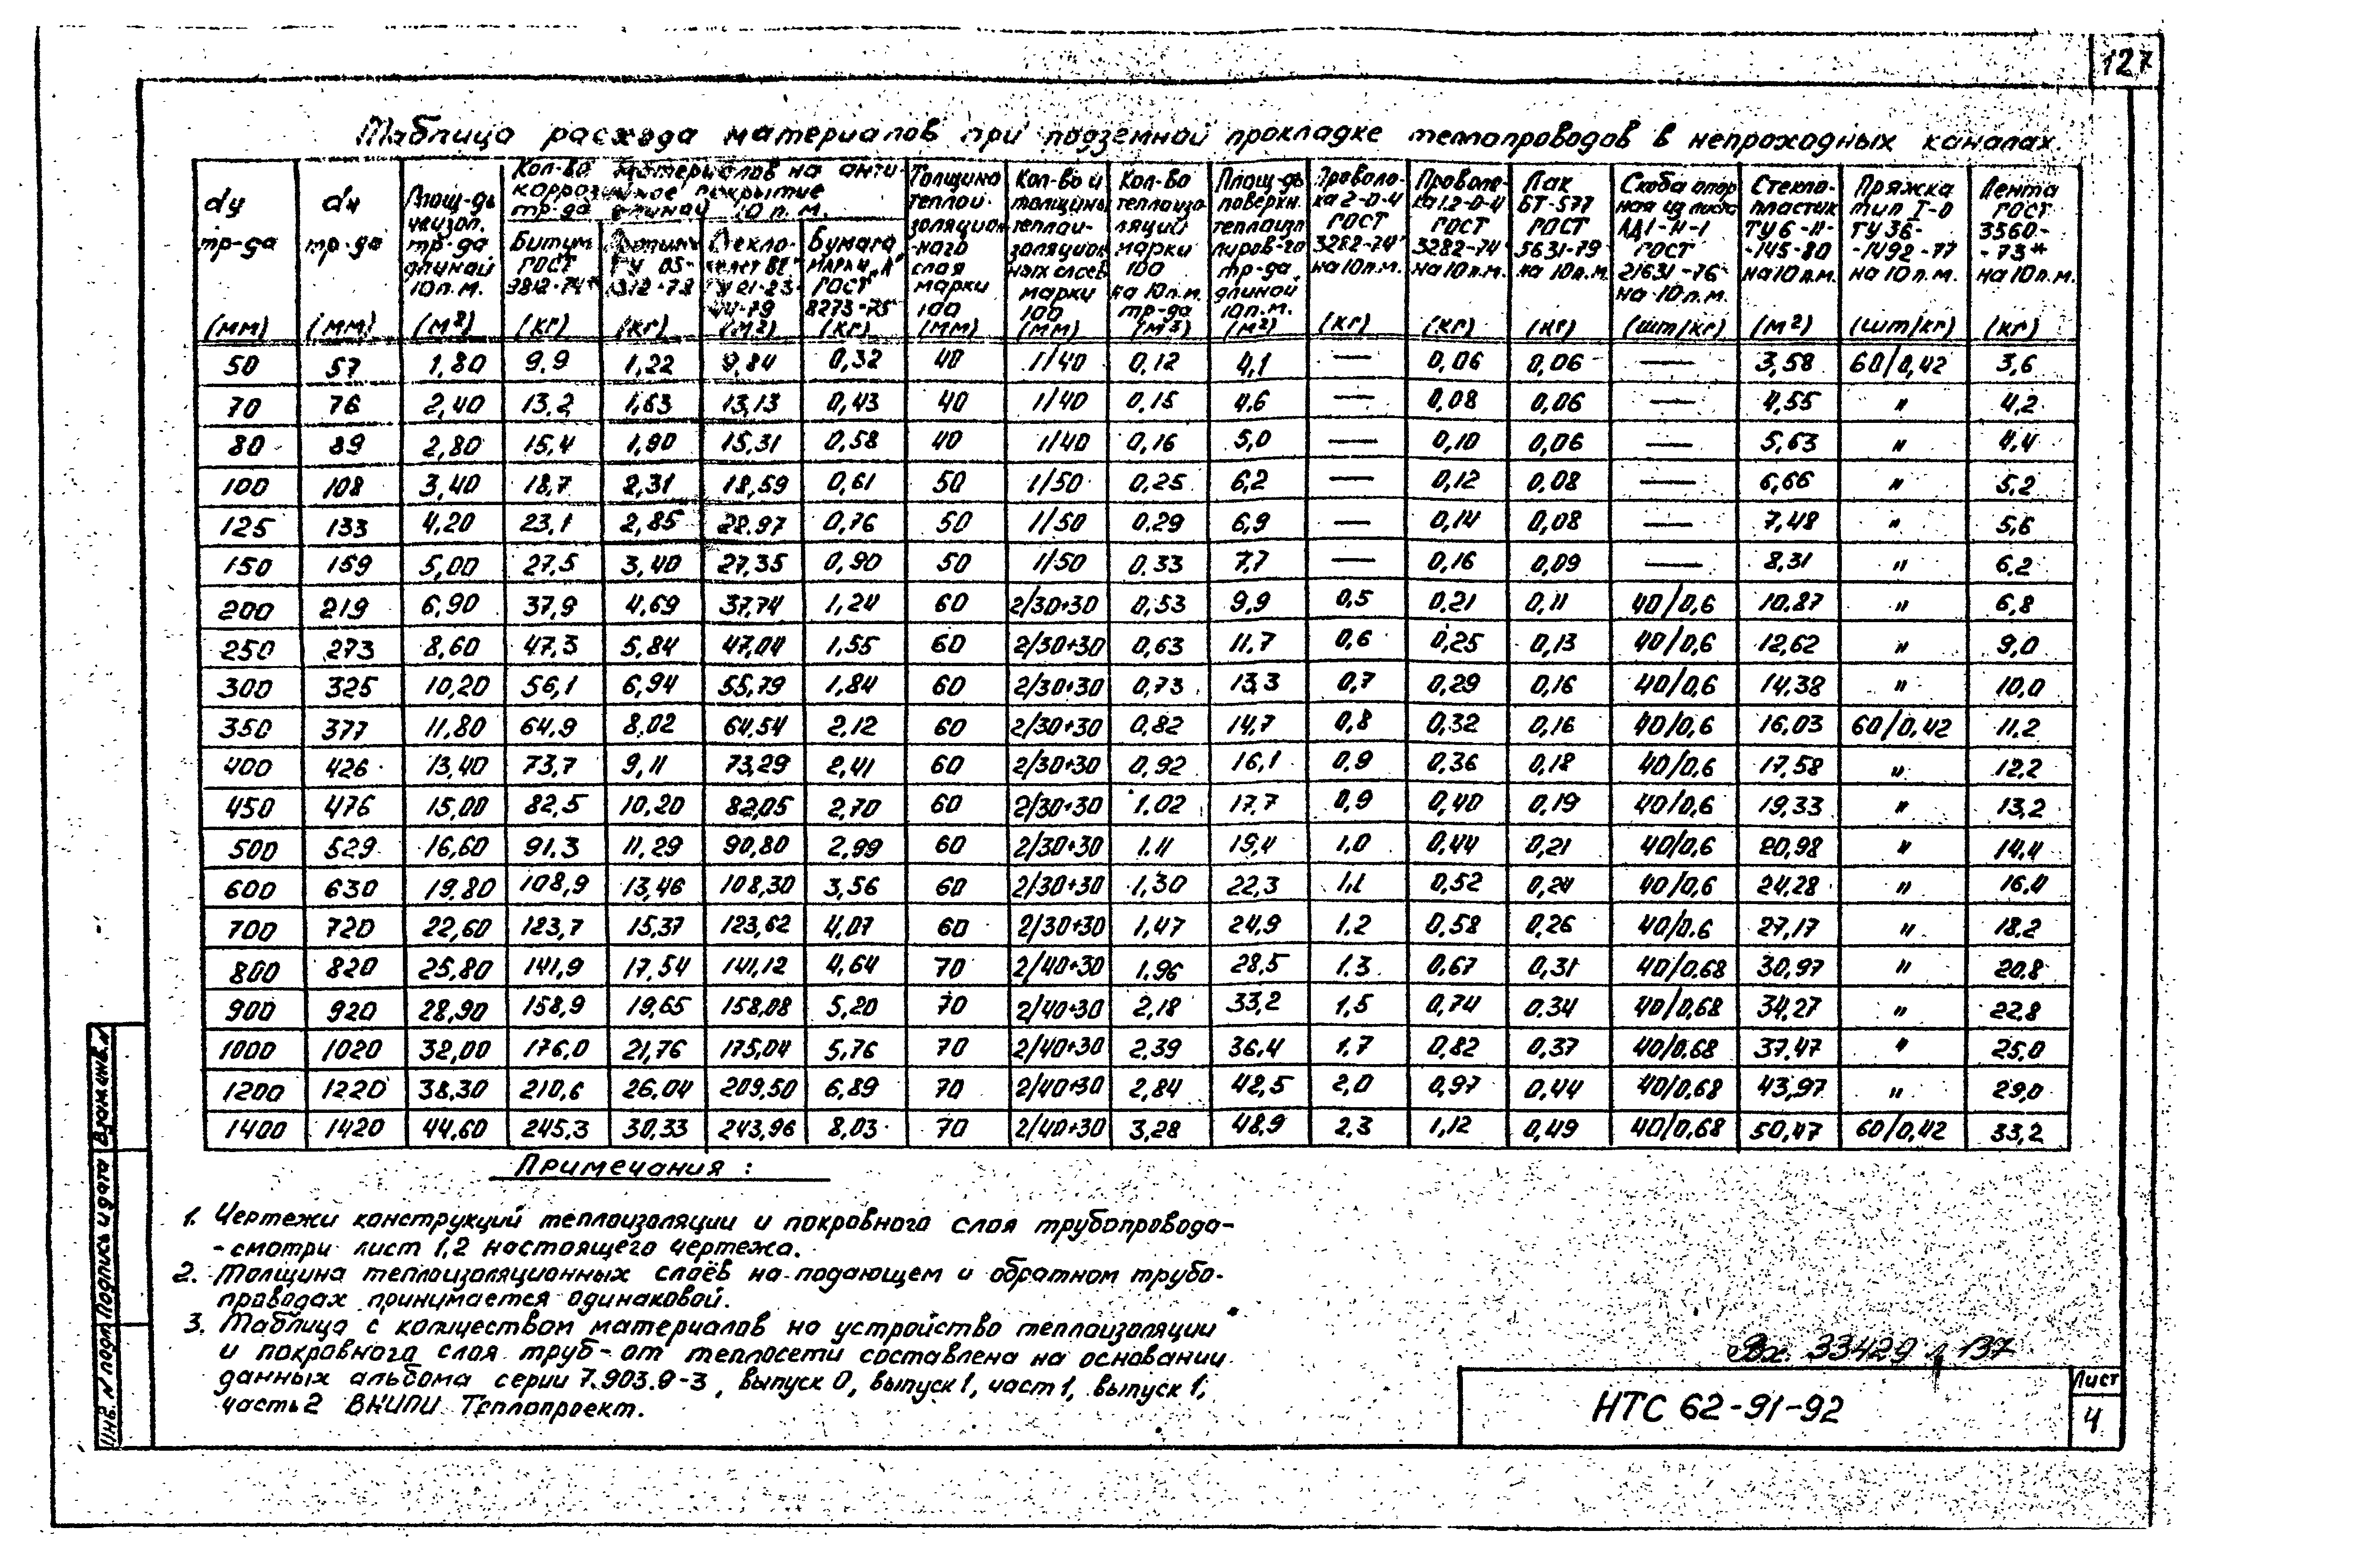 127
Таблица расхода материалов при подземной прокладке теплопроводов в непроходных каналах.
dу тр-да (мм)
dн тр-да (мм)
Площ-дь неизол. тр-да длиной 10 п.м. (м²)
Кол-во материалов на анти-
коррозийное покрытие
тр-да длиной 10 п.м.
Битум ГОСТ 9812-74* (кг)
ТУ 05- -78 (кг)
ТУ 21-23-44-79 (м²)
Бумага марки „А" ГОСТ 8273-75 (кг)
Толщина теплои-золяцион-ного слоя марки 100 (мм)
Кол-во и толщины теплои-золяцион ных слоев марки 100 (мм)
Кол-во теплоизо ляции марки 100 на 10п.м. тр-да (м³)
Площ-дь поверхн. теплоизо лиров-го тр-да длиной 10п.м. (м²)
Проволо-ка 2-0-4 ГОСТ 3282-74* на 10п.м. (кг)
Проволо-ка 1.2-0-4 ГОСТ 3282-74* на 10п.м. (кг)
Лак БТ-577 ГОСТ 5631-79 на 10п.м. (кг)
Скоба опор ная из листа АД1-Н-1 ГОСТ 21631-76 на 10п.м. (шт/кг)
Стекло-пластик ТУ6-11--145-80 на 10п.м. (м²)
Пряжка тип I-0 ТУ 36--1492-77 на 10п.м. (шт/кг)
Лента ГОСТ 3560--73* на 10п.м. (кг)
50 57 1,80 9,9 1,22 9,84 0,32 40 1/40 0,12 4,1 — 0,06 0,06 — 3,58 60/0,42 3,6
70 76 2,40 13,2 1,63 13,13 0,43 40 1/40 0,15 4,6 — 0,08 0,06 — 4,55 " 4,2
80 89 2,80 15,4 1,90 15,31 0,58 40 1/40 0,16 5,0 — 0,10 0,06 — 5,63 " 4,4
100 108 3,40 18,7 2,31 18,59 0,61 50 1/50 0,25 6,2 — 0,12 0,08 — 6,66 " 5,2
125 133 4,20 23,1 2,85 22.97 0,76 50 1/50 0.29 6,9 — 0,14 0,08 — 7,48 " 5,6
150 159 5,00 27,5 3,40 27,35 0,90 50 1/50 0.33 7,7 — 0,16 0,09 — 8,31 " 6,2
200 219 6,90 37,9 4,69 37,74 1,24 60 2/30+30 0,53 9,9 0,5 0,21 0,11 40/0,6 10,87 " 6,8
250 273 8,60 47,3 5,84 47,04 1,55 60 2/30+30 0,63 11,7 0,6 0,25 0,13 40/0,6 12,62 " 9,0
300 325 10,20 56,1 6,94 55,79 1,84 60 2/30+30 0,73 13,3 0,7 0,29 0,16 40/0,6 14,38 " 10,0
350 377 11,80 64,9 8,02 64,54 2,12 60 2/30+30 0,82 14,7 0,8 0,32 0,16 40/0,6 16,03 60/0,42 11,2
400 426 13,40 73,7 9,11 73,29 2,41 60 2/30+30 0,92 16,1 0,9 0,36 0,18 40/0,6 17,58 " 12,2
450 476 15,00 82,5 10,20 82,05 2,70 60 2/30+30 1.02 17,7 0,9 0,40 0,19 40/0,6 19,33 " 13,2
500 529 16,60 91.3 11,29 90,80 2,99 60 2/30+30 1.11 19,4 1,0 0,44 0,21 40/0,6 20,98 " 14,4
600 630 19,80 108,9 13,46 108,30 3,56 60 2/30+30 1,30 22,3 1,1 0,52 0,24 40/0,6 24,28 " 16,4
700 720 22,60 123,7 15,37 123,62 4,07 60 2/30+30 1,47 24,9 1.2 0,58 0,26 40/0.6 27,17 " 18,2
800 820 25,80 141,9 17,54 141,12 4,64 70 2/40+30 1.96 28,5 1.3 0,67 0,31 40/0.68 30,97 " 20,8
900 920 28,90 158,9 19,65 158,08 5,20 70 2/40+30 2,18 33,2 1,5 0,74 0.34 40/0,68 34,27 " 22,8
1000 1020 32,00 176,0 21,76 175,04 5,76 70 2/40+30 2,39 36,4 1,7 0,82 0,37 40/0.68 37,47 " 25,0
1200 1220 38,30 210,6 26,04 209,50 6,89 70 2/40+30 2,84 42,5 2,0 0,97 0,44 40/0,68 43,97 " 29,0
1400 1420 44,60 245,3 30,33 243,96 8,03 70 2/40+30 3,28 48,9 2,3 1,12 0,49 40/0,68 50,47 60/0,42 33,2
Примечания :
1. Чертежи конструкций теплоизоляции и покровного слоя трубопровода-
- смотри лист 1,2 настоящего чертежа.
2. Толщина теплоизоляционных слоёв на подающем и обратном трубо-
проводах принимается одинаковой.
3. Таблица с количеством материалов на устройство теплоизоляции
и покровного слоя труб-от теплосети составлена на основании
данных альбома серии 7.903.9-3, выпуск 0, выпуск 1, част 1, выпуск 1,
часть 2 ВНИПИ Теплопроект.
Вх. 33429 л 137
НТС 62-91-92
Лист
4
Инв. N подл Подпись и дата Взам.инв.N